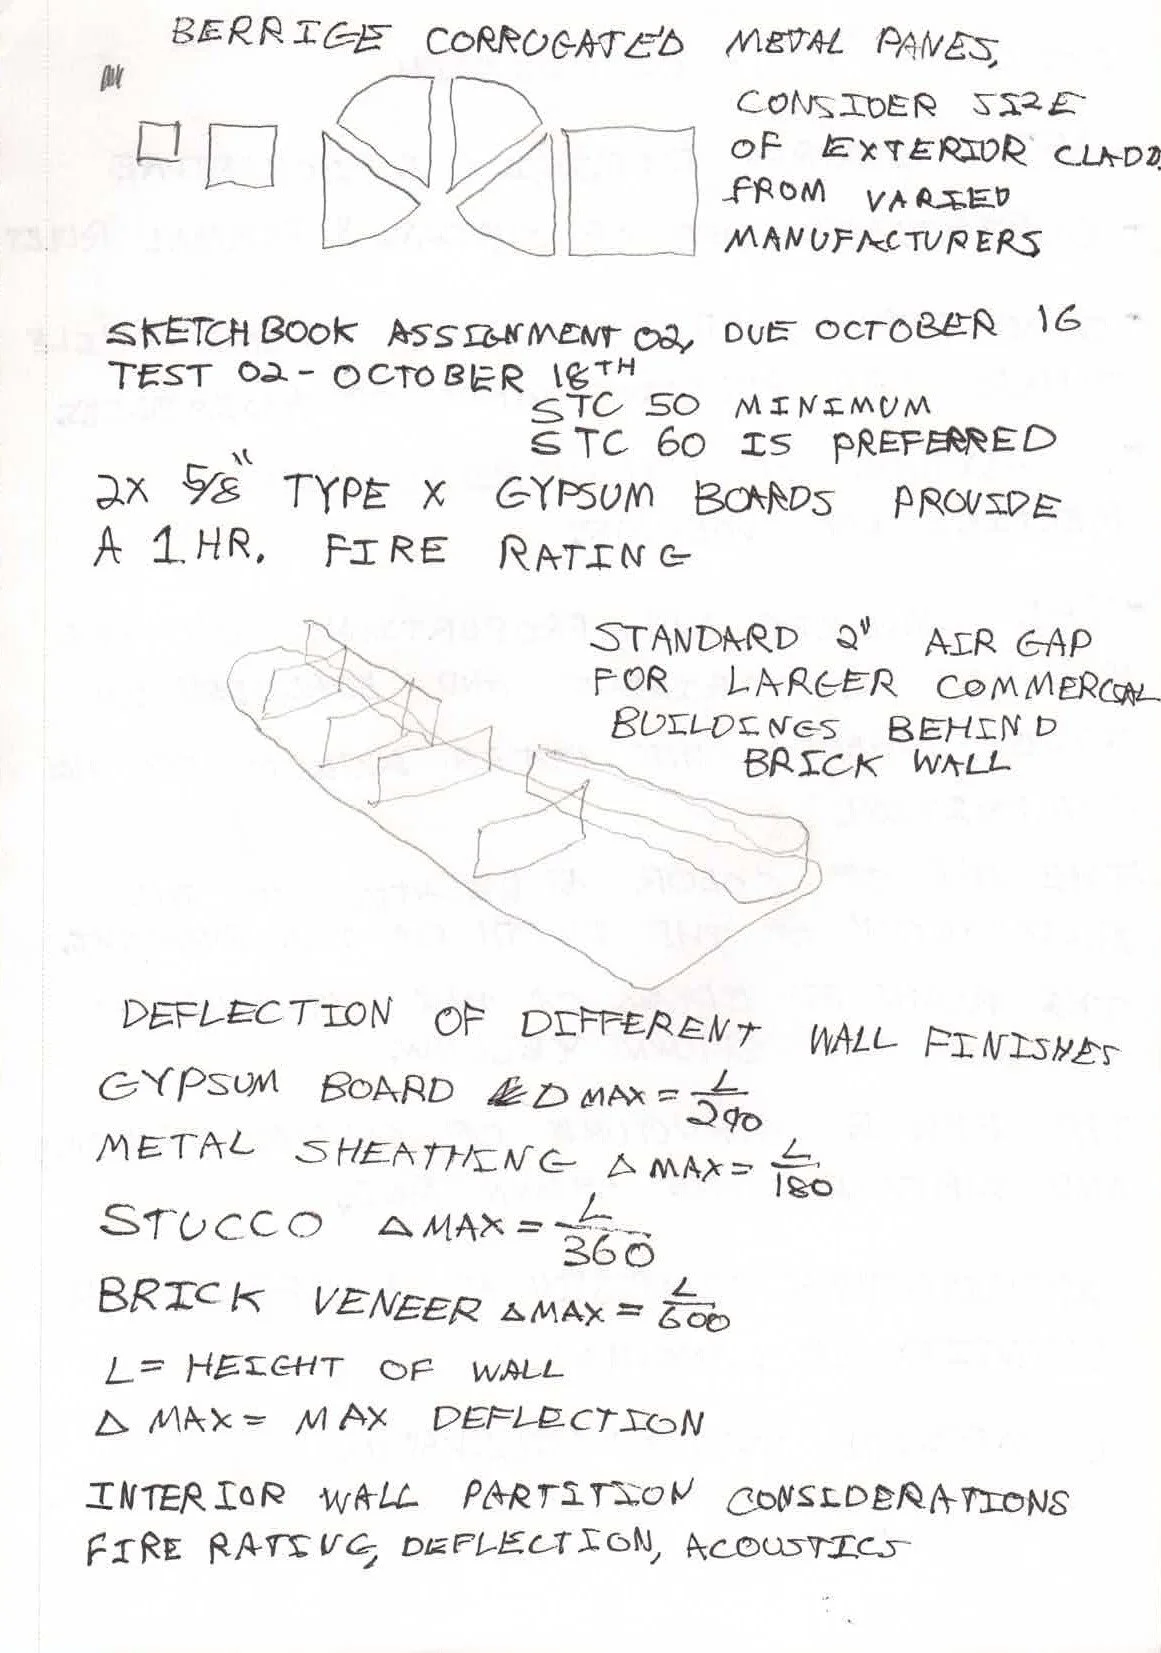 BERRIGE CORRUGATED METAL PANES,
CONSIDER SIZE
OF EXTERIOR CLADD
FROM VARIED
MANUFACTURERS
SKETCHBOOK ASSIGNMENT 02, DUE OCTOBER 16
TEST 02 - OCTOBER 18TH
STC 50 MINIMUM
STC 60 IS PREFERRED
2X 5/8" TYPE X GYPSUM BOARDS PROVIDE
A 1 HR. FIRE RATING
STANDARD 2" AIR GAP
FOR LARGER COMMERCIAL
BUILDINGS BEHIND
BRICK WALL
DEFLECTION OF DIFFERENT WALL FINISHES
GYPSUM BOARD D MAX = L/240
METAL SHEATHING Δ MAX = L/180
STUCCO Δ MAX = L/360
BRICK VENEER Δ MAX = L/600
L = HEIGHT OF WALL
Δ MAX = MAX DEFLECTION
INTERIOR WALL PARTITION CONSIDERATIONS
FIRE RATING, DEFLECTION, ACOUSTICS